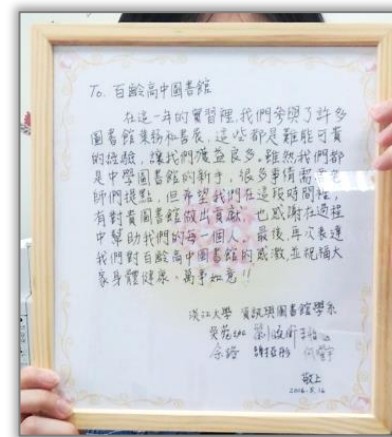 To. 百齡高中圖書館
在這一年的實習裡,我們參與了許多
圖書館業務和書展,這些都是難能可貴
的經驗,讓我們獲益良多。雖然我們都
是中學圖書館的新手,很多事情需要老
師們提點,但希望我們在這段時間裡,
有對貴圖書館做出貢獻,也感謝在過程
中幫助我們的每一個人。最後,再次表達
我們對百齡高中圖書館的感激,並祝福大
家身體健康、萬事如意!!
淡江大學 資訊與圖書館學系
敬上
2016.5.16